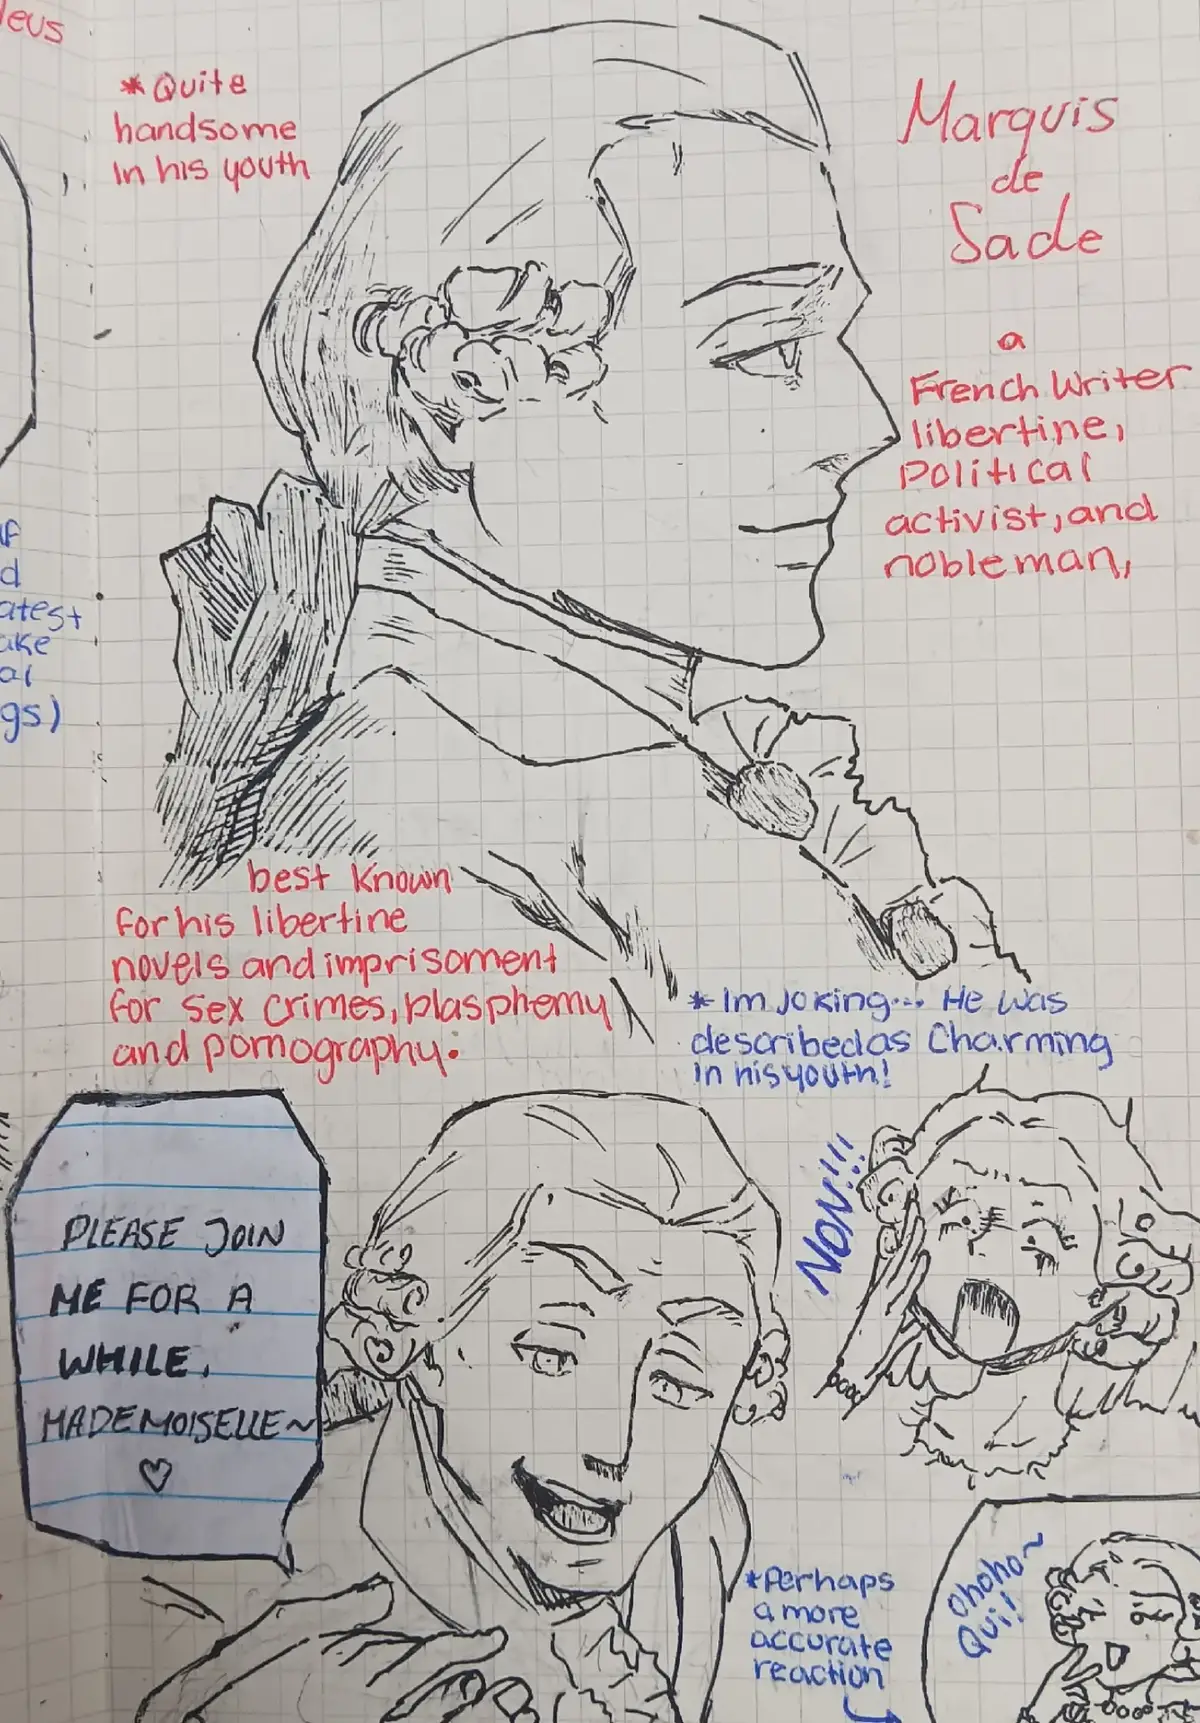 * Quite
handsome
In his youth
Marquis
de
Sade
a
French Writer
libertine,
Political
activist, and
nobleman,
best Known
for his libertine
novels and imprisoment
for sex crimes, blasphemy
and pornography.
* Im Joking... He was
described as Charming
In his youth!
PLEASE JOIN
ME FOR A
WHILE,
MADEMOISELLE~
♡
NON!!!
* Perhaps
a more
accurate
reaction
Ohoho~
Qui!
leus
af
d
atest
ake
al
gs)